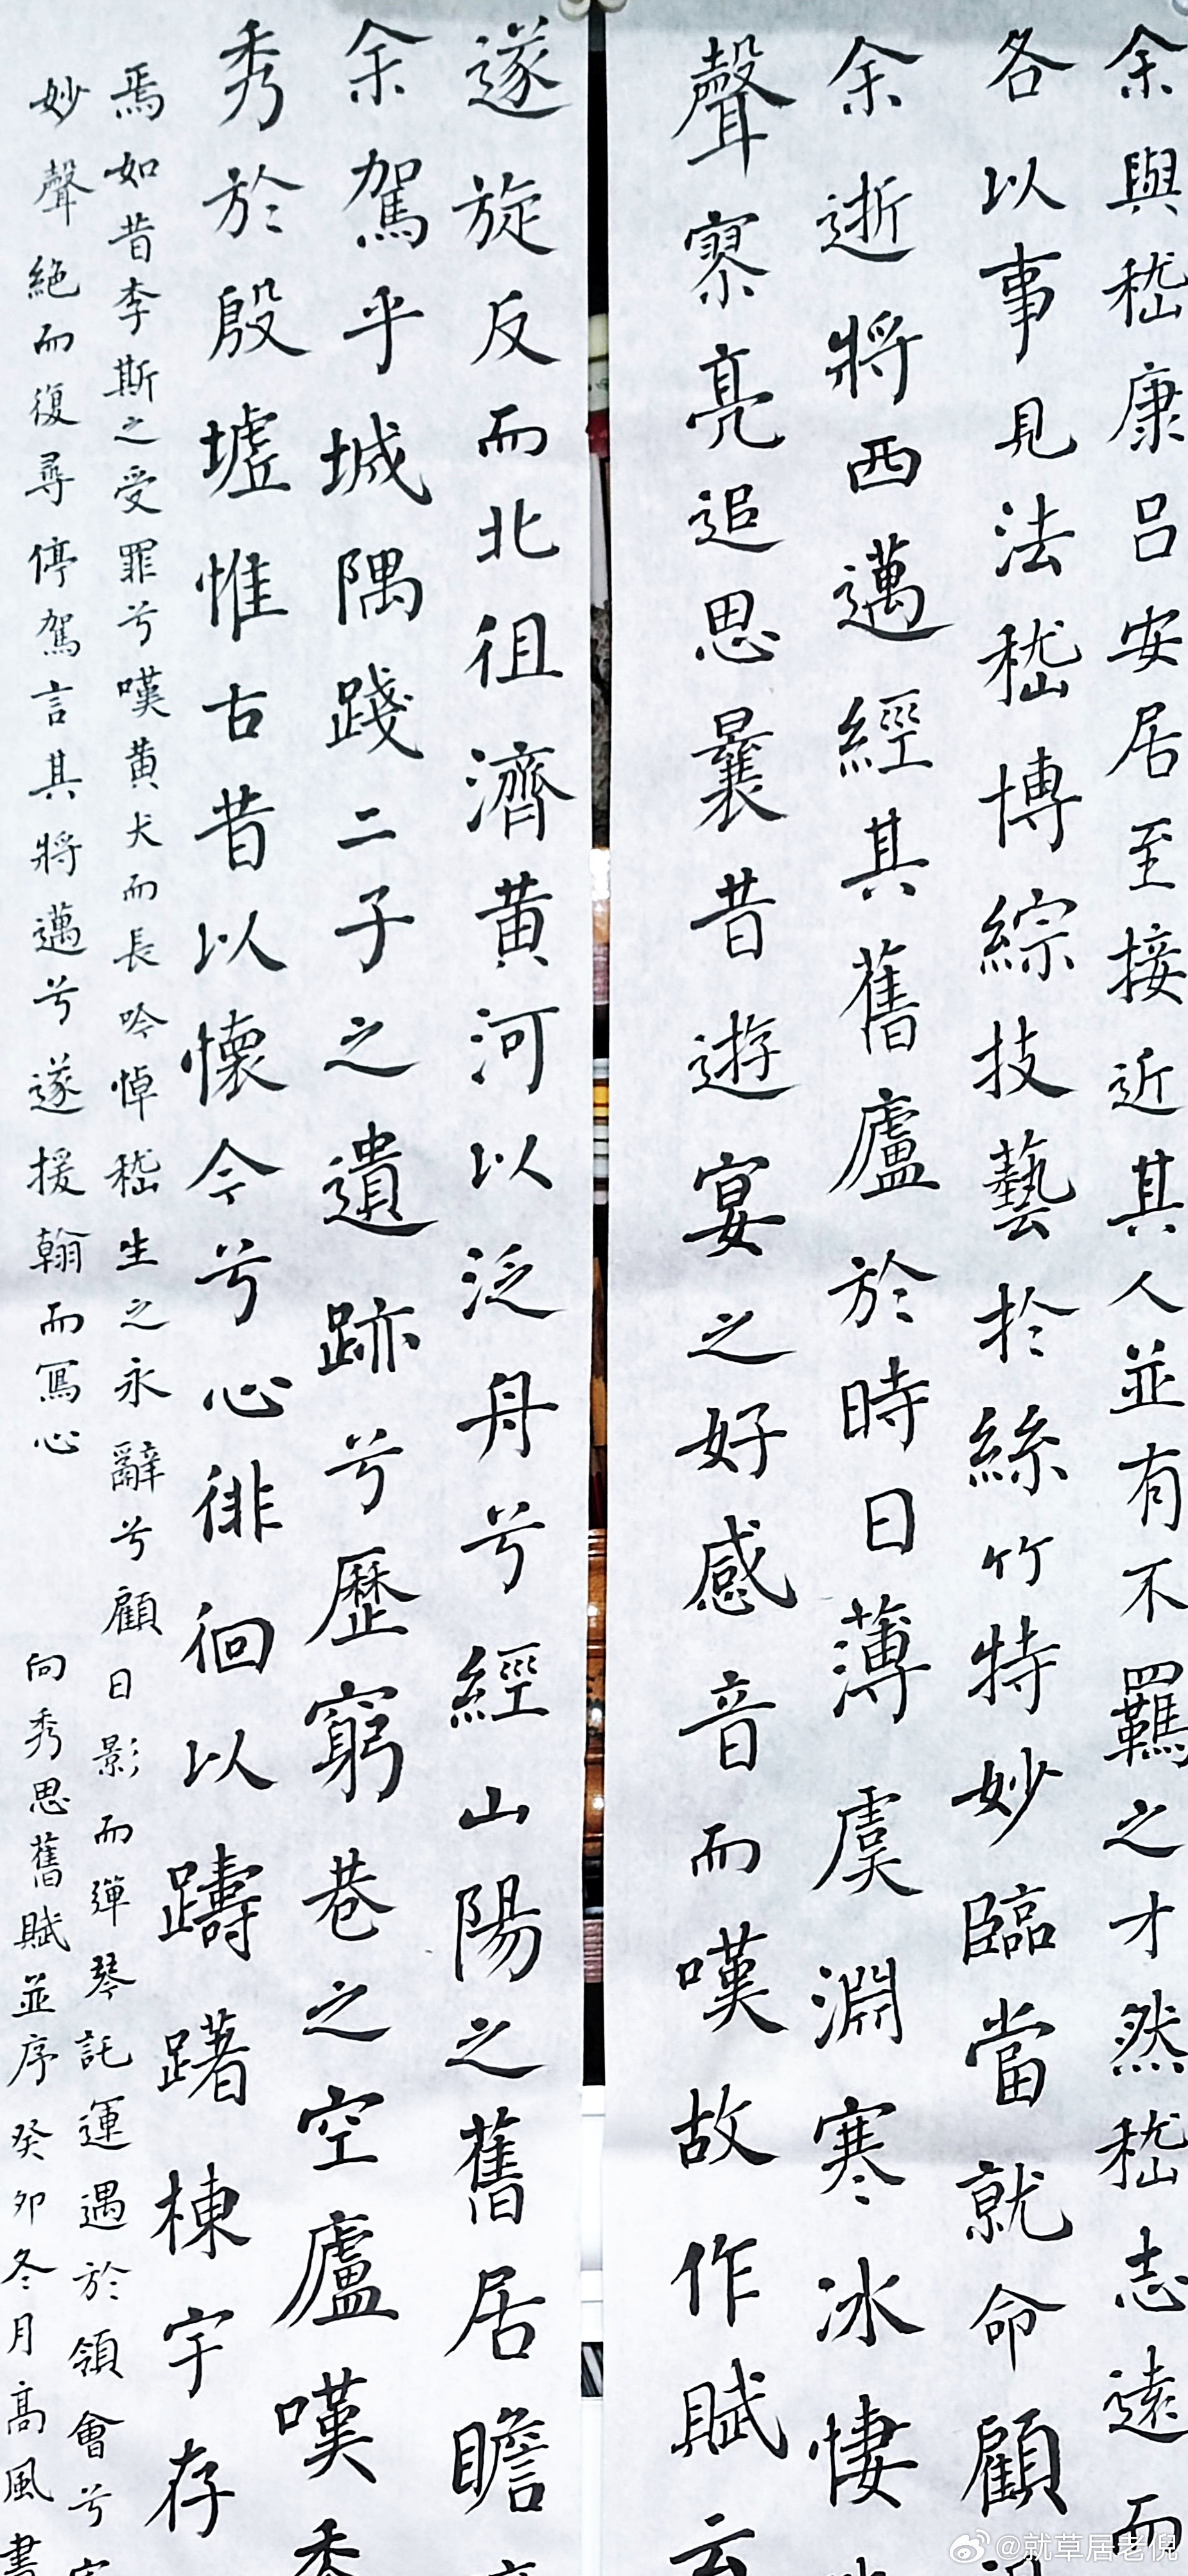 余與嵇康呂安居至接近其人並有不羈之才然嵇志遠而
各以事見法嵇博綜技藝於絲竹特妙臨當就命顧
余逝將西邁經其舊廬於時日薄虞淵寒冰悽
聲寥亮追思曩昔遊宴之好感音而嘆故作賦云
遂旋反而北徂濟黄河以泛舟兮經山陽之舊居瞻
余駕乎城隅踐二子之遺跡兮歷窮巷之空廬嘆黍
秀於殷墟惟古昔以懷今兮心徘徊以躊躇棟宇存
焉如昔李斯之受罪兮嘆黄犬而長吟悼嵇生之永辭兮顧日影而彈琴託運遇於領會兮
妙聲絶而復尋停駕言其將邁兮遂援翰而寫心
向秀思舊賦並序 癸卯冬月高風書
@就草居老倪